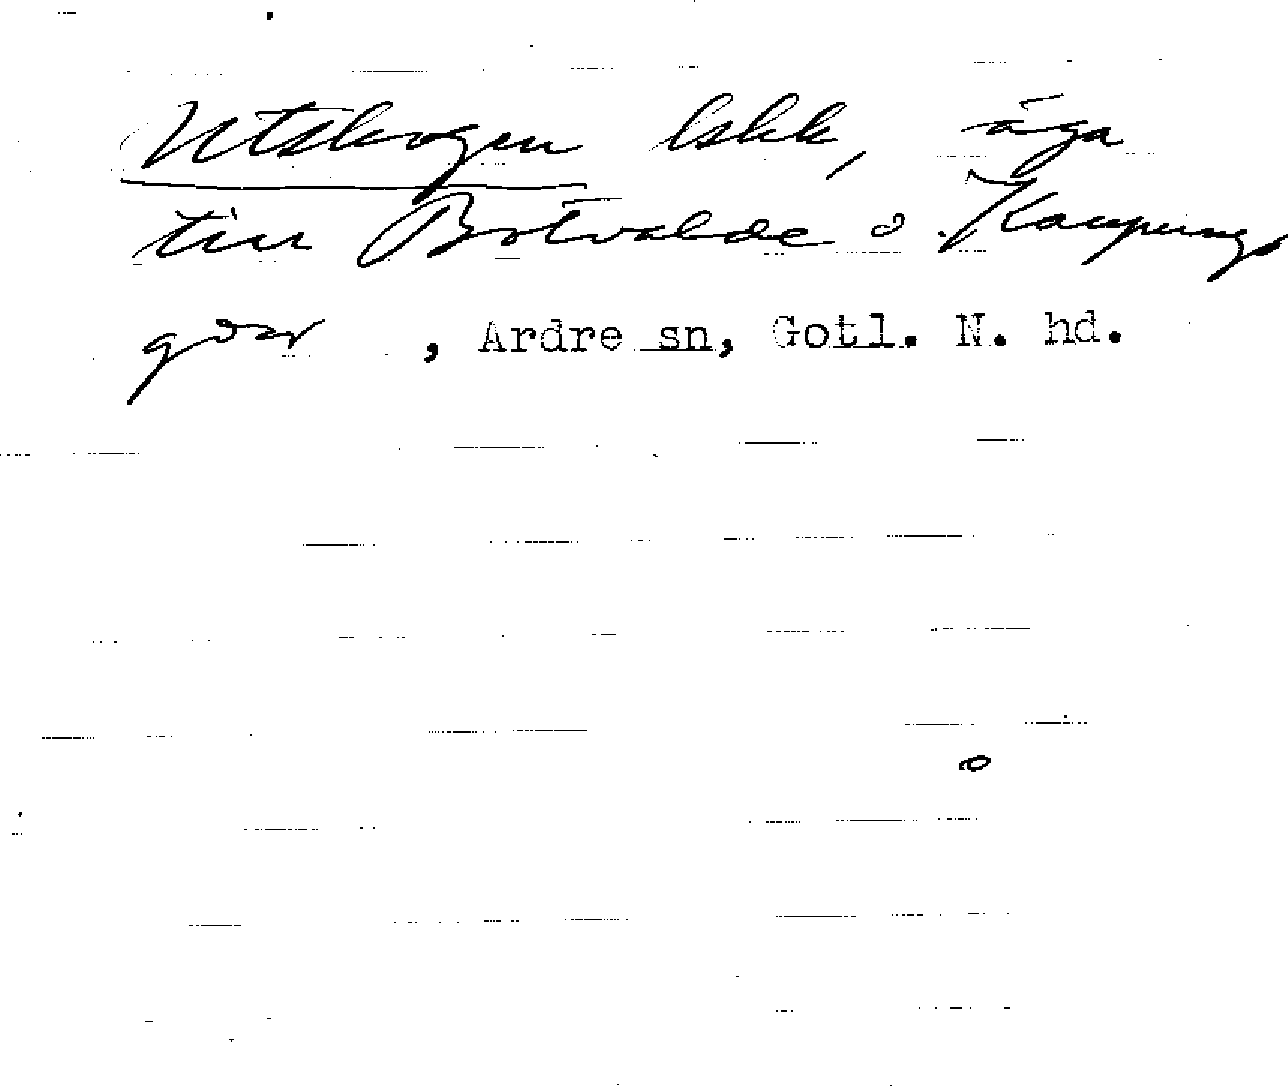 Utskogen lskk, äga
till Botvalde o. Kaupungs
gdar, Ardre sn, Gotl. N. hd.